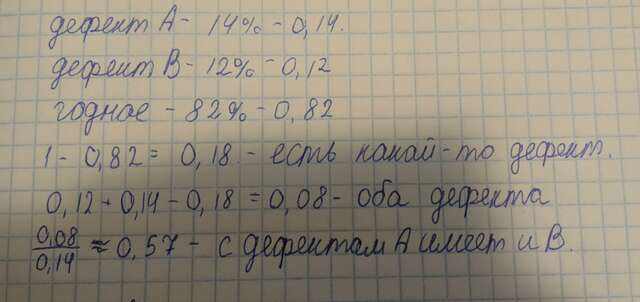 дефект А - 14% - 0,14.
дефект В - 12% - 0,12
годное - 82% - 0,82
1 - 0,82 = 0,18 - есть какой-то дефект.
0,12 + 0,14 - 0,18 = 0,08 - оба дефекта
0,08/0,14 ≈ 0,57 - с дефектам А имеет и В.